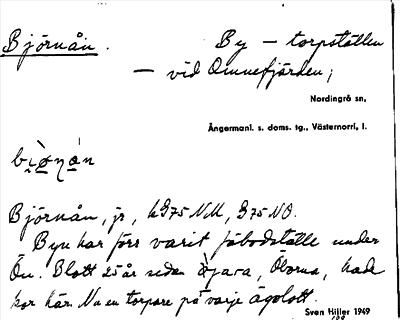 Björnån.
By – torpställen
– vid Omnefjärden;
Nordingrå sn,
Ångermanl. s. doms. tg., Västernorrl. l.
Björnån, js, kG75NM, G75NO.
Byn har förr varit fäbodställe under
Ön. Blott 25 år sedan ägarna, Öborna, hade
kor här. Nu en torpare på varje ägolott.
Sven Hiller 1949